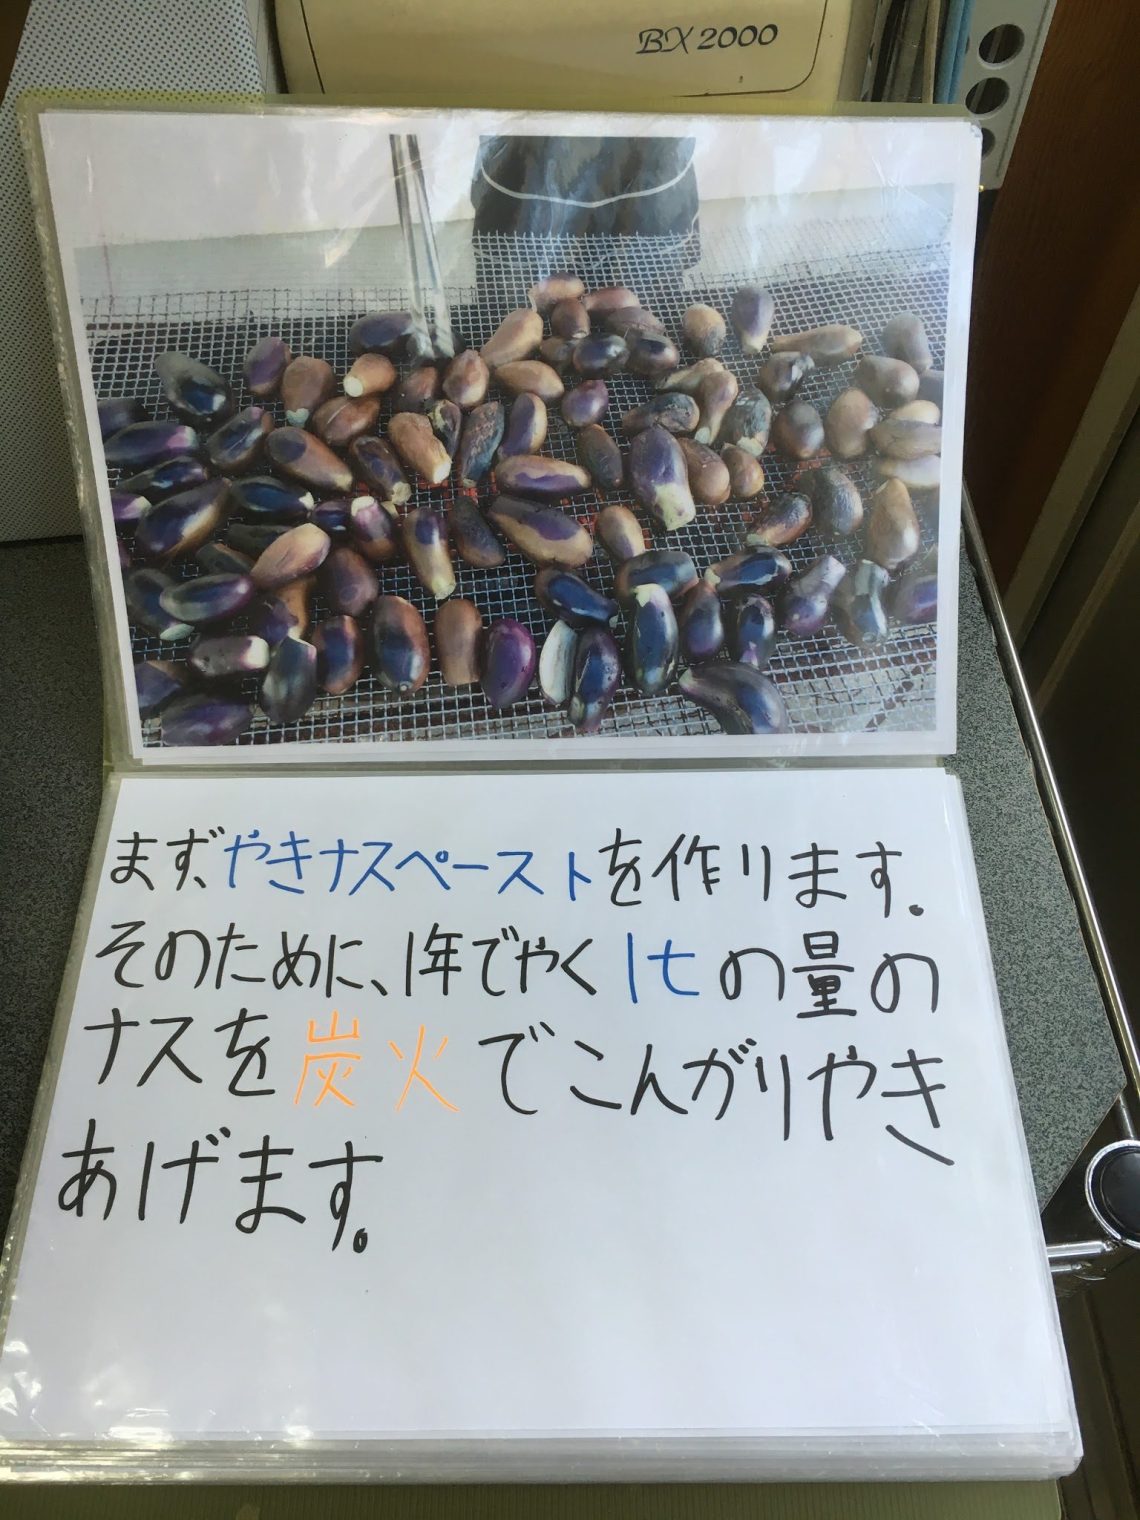 BX 2000
まず、やきナスペーストを作ります。
そのために、1年でやく1tの量の
ナスを炭火でこんがりやき
あげます。